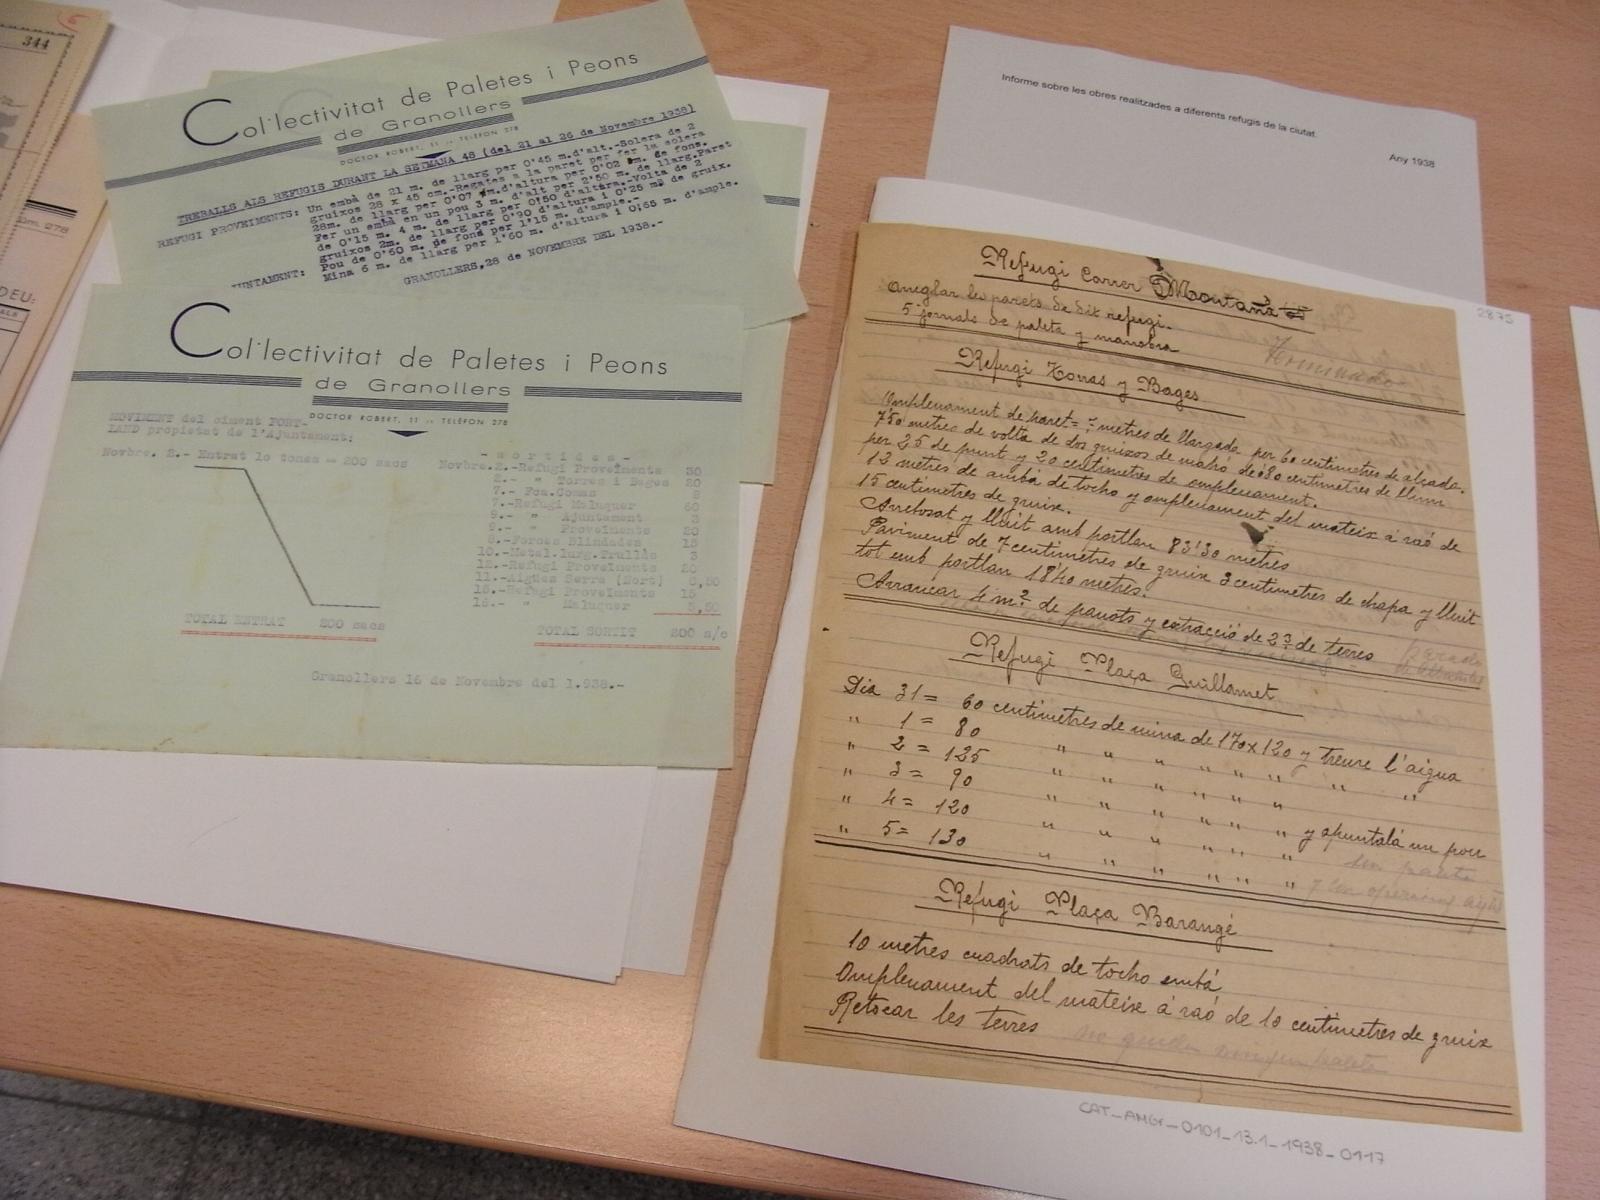 344
Col·lectivitat de Paletes i Peons
de Granollers
DOCTOR ROBERT, 11 :: TELÈFON 278
TREBALLS ALS REFUGIS DURANT LA SETMANA 48 (del 21 al 26 de Novembre 1938)
REFUGI PROVEIMENTS: Un embà de 21 m. de llarg per 0'45 m.d'alt.-Solera de 2
gruixos 28 x 45 cm.-Regates a la paret per fer la solera
28m. de llarg per 0'07 m.d'altura per 0'02 m. de fons.
Fer un embà en un pou 3 m. d'alt per 2'50 m. de llarg.Paret
de 0'15 m. 4 m. de llarg per 0'50 d'altura.-Volta de 2
gruixos 2m. de llarg per 0'90 d'altura i 0'25 m. de gruix.
Pou de 0'60 m. de fons per 1'15 m. d'ample.-
JUNTAMENT: Mina 6 m. de llarg per 1'60 m. d'altura i 0'65 m. d'ample.
GRANOLLERS,28 de NOVEMBRE DEL 1938.-
Col·lectivitat de Paletes i Peons
de Granollers
DOCTOR ROBERT, 11 :: TELÈFON 278
MOVIMENT del ciment PORT-
LAND propietat de l'Ajuntament:
Novbre. 2.- Entrat 10 tones = 200 sacs
TOTAL ENTRAT 200 sacs
- S o r t i d e s -
Novbre.2.-Refugi Proveïments 30
2.- " Torres i Bages 20
7.- Fca.Comas
7.-Refugi Maluquer 60
9.- " Ajuntament 3
9.- " Proveïments 20
8.-Forces Blindades 15
10.-Metal.lurg.Trullàs 3
12.-Refugi Proveïments 20
11.-Aigües Serra (Nort)
15.-Refugi Proveïments 15
16.- " Maluquer
TOTAL SORTIT 200 s/c
Granollers 16 de Novembre del 1.938.-
Informe sobre les obres realitzades a diferents refugis de la ciutat.
Any 1938
2875
Refugi Carrer Montaña
Arreglar les parets de dit refugi.
5 jornals de paleta y manobra
Terminado
Refugi Torras y Bages
Omplenament de paret = metres de llargada per 60 centimetres de alçada.
7'50 metres de volta de dos gruixos de mahó de 80 centimetres de llum
per 25 de punt y 20 centimetres de omplenament.
12 metres de ambá de tocho y omplenament del mateix á raó de
15 centimetres de gruix.
Arrebosat y lluit amb portlan 83'30 metres
Paviment de 7 centimetres de gruix 3 centimetres de chapa y lluit
tot amb portlan 18'40 metres.
Arrancar 4 m² de panots y extracció de 2 de terres
Refugi Plaça Guillamet
Dia 31 = 60 centimetres de mina de 170x120 y treure l'aigua
" 1 = 80 " " " " " " "
" 2 = 125 " " " " "
" 3 = 90 " " " " "
" 4 = 120 " " " " " y apuntalá un pou
" 5 = 130 " " " " "
Refugi Plaça Barangé
10 metres cuadrats de tocho embá
Omplenament del mateix á raó de 10 centimetres de gruix
Retocar les terres
CAT_AMGr_0101_13.1_1938_0117